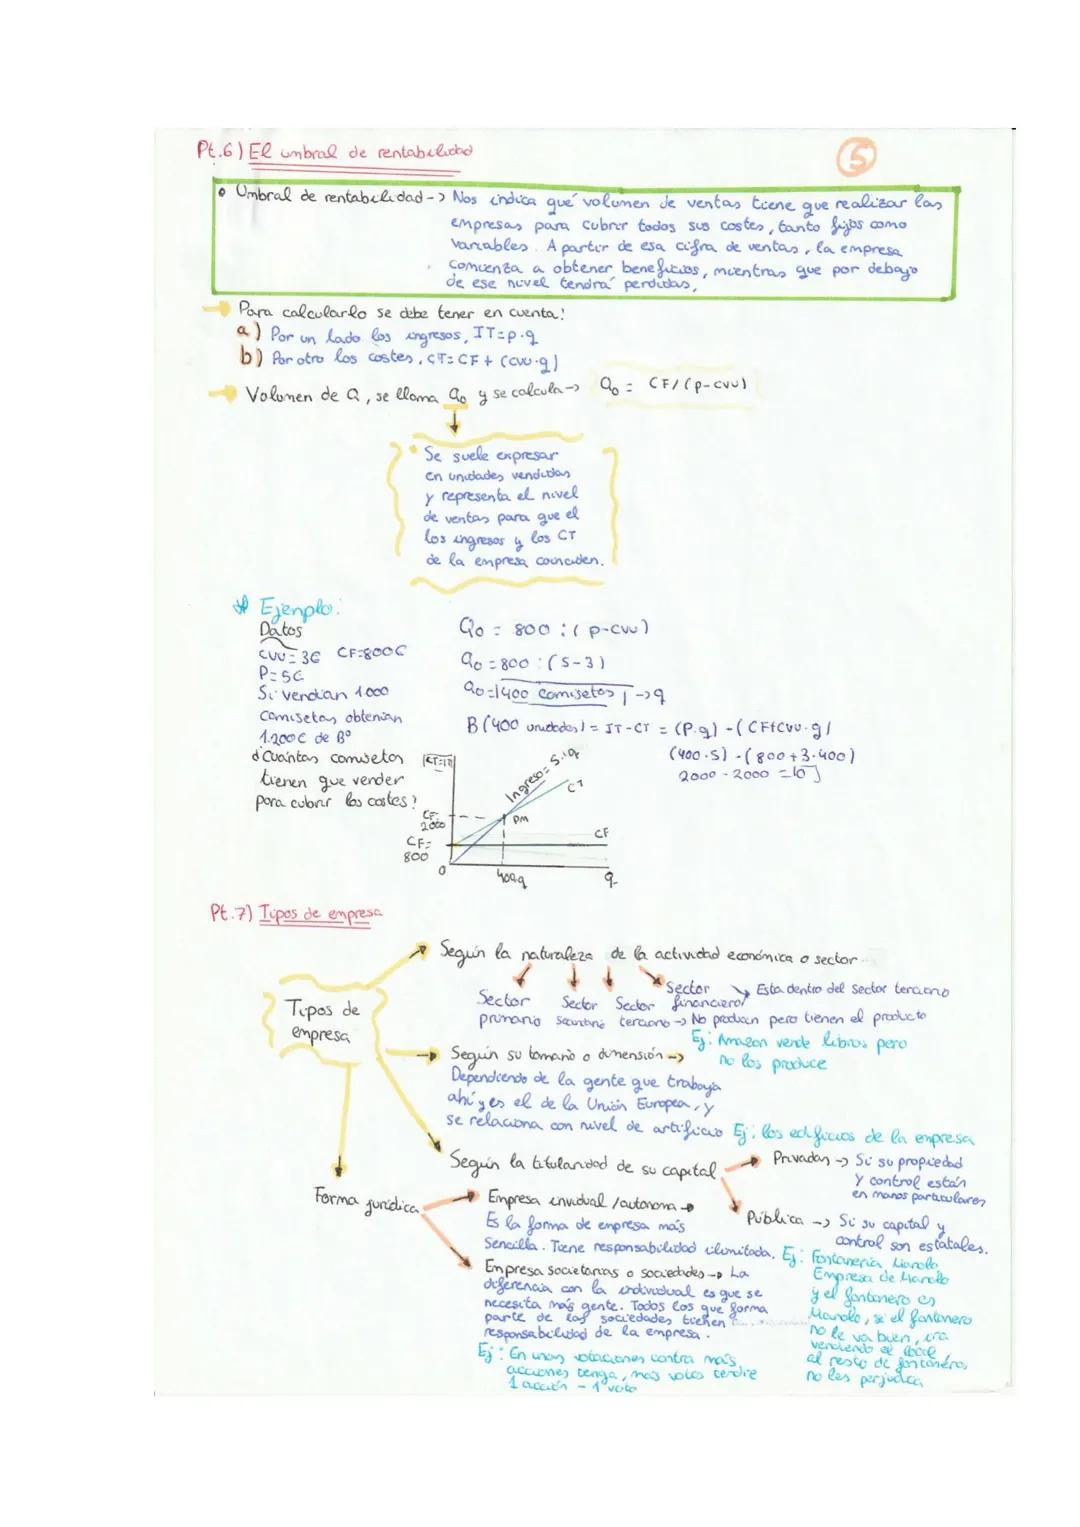 Pt.6) El umbral de rentabilidad
5
• Umbral de rentabilidad -> Nos indica qué volumen de ventas tiene que realizar las
empresas para cubrir todos sus costes, tanto fijos como
variables. A partir de esa cifra de ventas, la empresa
comienza a obtener beneficios, mientras que por debajo
de ese nivel tendrá perdidas,
Para calcularlo se debe tener en cuenta:
a) Por un lado los ingresos, IT=p·q
b) Por otro los costes, CT=CF+ (cvu·q)
Volumen de Q, se llama Qo y se calcula -> Qo = CF/(p-cvu)
• Se suele expresar
en unidades vendidas
y representa el nivel
de ventas para que el
los ingresos y los CT
de la empresa coinciden.
* Ejenplo:
Datos
CVU= 3€ CF=800€
P=5€
Si vendian 1.000
camisetas obtenian
1.200€ de Bº
¿Cuántas camisetas
tienen que vender
para cubrir los costes?
Qo = 800 : (p-cvu)
Qo = 800 : (5-3)
Qo = 400 camisetas -> q
B (400 unidades) = IT-CT = (P.q) - (CF+CVU·q)
(400·5) - (800+3·400)
2000 - 2000 = 0
CT=IT
Ingreso= 5·q
CT
CF:
2000
PM
CF
CF=
800
0
400q
q
Pt.7) Tipos de empresa
Tipos de
empresa
Según la naturaleza de la actividad económica o sector
Sector
primario
Sector
secundario
Sector
terciario -> No producen pero tienen el producto
Sector
financiero
Esta dentro del sector terciario
Ej: Amazon vende libros pero
no los produce
Según su tamaño o dimensión ->
Dependiendo de la gente que trabaja
ahí y es el de la Unión Europea, y
se relaciona con nivel de artificio Ej: los edificios de la empresa
Según la titularidad de su capital
Privadas -> Si su propiedad
y control están
en manos particulares
Pública -> Si su capital y
control son estatales.
Forma jurídica
Empresa invidual /autonoma ->
Es la forma de empresa más
sencilla. Tiene responsabilidad ilimitada. Ej: Fontanería Manolo
Empresa de Manolo
y el fontanero es
Manolo, si el fontanero
no le va bien, ira
vendiendo el local
al resto de fontaneros,
no les perjudica
Empresa societarias o sociedades -> La
diferencia con la individual es que se
necesita más gente. Todos los que forma
parte de las sociedades tienen
responsabilidad de la empresa.
Ej: En unas votaciones contra más
acciones tenga, mas votos tendre
1 acción - 1 voto